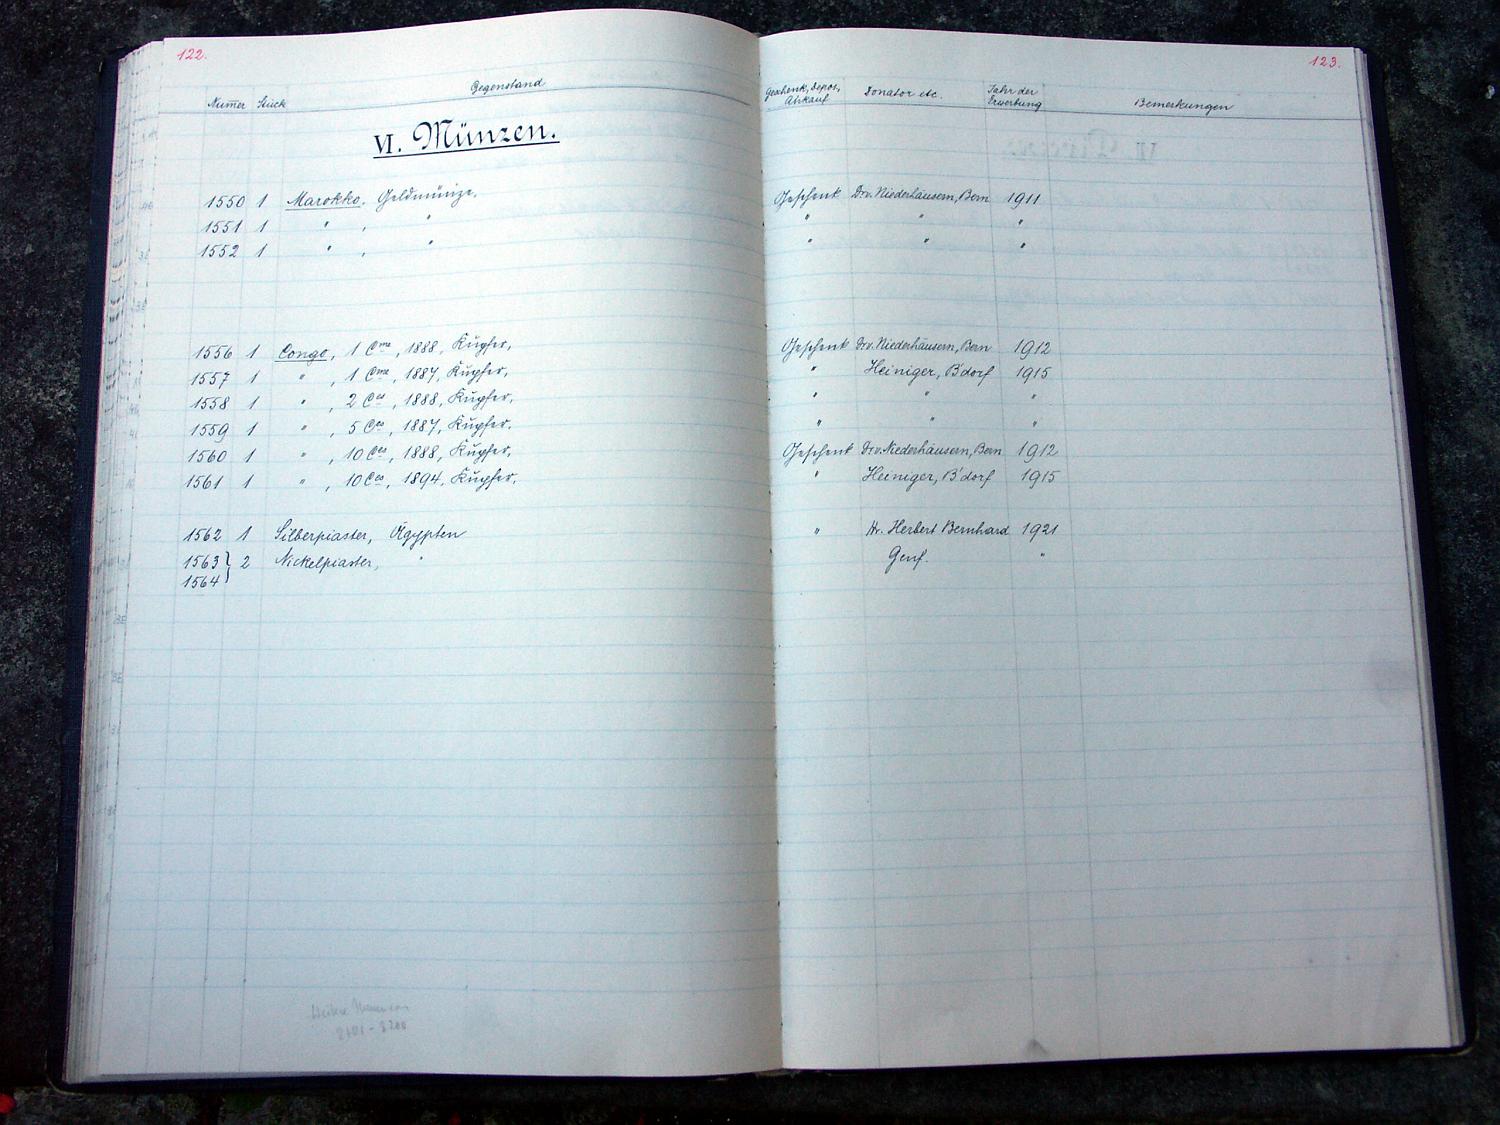 122.
123.
Numer Stück Gegenstand Geschenk, Depos, Donator etc. Jahr der Bemerkungen
Ankauf Erwerbung
VI. Münzen.
1550 1 Marokko, Geldmünze. Geschenk Dr. v. Niederhäusern, Bern 1911
1551 1 " , " " " "
1552 1 " , " " " "
1556 1 Congo, 1 Cme, 1888, Kupfer, Geschenk Dr. v. Niederhäusern, Bern 1912
1557 1 " , 1 Cme, 1887, Kupfer, " Heiniger, B'dorf 1915
1558 1 " , 2 Ces, 1888, Kupfer, " " "
1559 1 " , 5 Ces, 1887, Kupfer. " " "
1560 1 " , 10 Ces, 1888, Kupfer, Geschenk Dr. v. Niederhäusern, Bern 1912
1561 1 " , 10 Ces, 1894, Kupfer, " Heiniger, B'dorf 1915
1562 1 Silberpiaster, Ägypten " Hr. Herbert Bernhard 1921
1563 } 2 Nickelpiaster, " Genf. "
1564